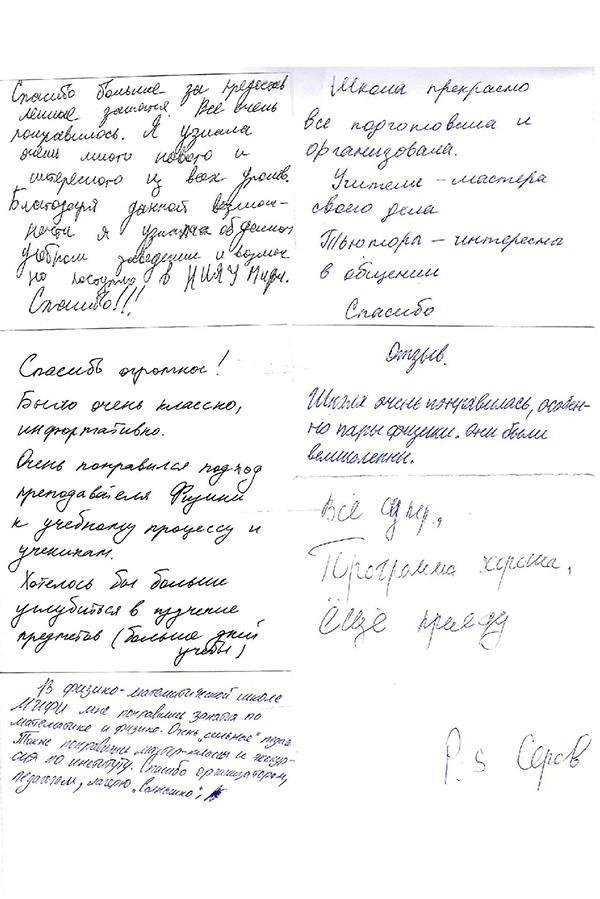 Спасибо большое за предостав
ленные занятия. Все очень
понравилось. Я узнала
очень много нового и
интересного из всех уроков.
Благодаря данной возмож-
ности я узнала об данном
учебном заведении и возмож
но поступлю в НИЯУ Мифи.
Спасибо!!!
Школа прекрасно
все подготовила и
организовала.
Учителя – мастера
своего дела
Тьюторы – интересны
в общении
Спасибо
Спасибо огромное!
Было очень классно,
информативно.
Очень понравился подход
преподавателя Физики
к учебному процессу и
ученикам.
Хотелось бы больше
углубиться в изучение
предметов (больше дней
учебы)
Отзыв.
Школа очень понравилась, особен-
но пары физики. Они были
великолепны.
Всё
Программа хороша,
Ещё приеду
P.S Серов
В физико-математической школе
МИФИ мне понравились занятия по
математике и физике. Очень „сильные"
Также понравились мастер-классы и экскур-
сия по институту. Спасибо организаторам,
педагогам, лагерю „Волнушка",